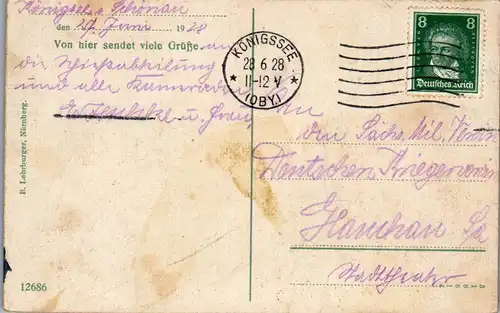 Königssee u. Schönau
den 27. Juni 1928
Von hier sendet viele Grüße
die Schießabteilung
und alle Kameraden
u. Frau
B. Lehrburger, Nürnberg.
12686
KÖNIGSSEE
28 6 28
11-12 V
(OBY.)
8 8
Deutsches Reich
An
den Sächs. Mil. Verein
Deutschen Krieger
Glauchau Sa
Stadttheater